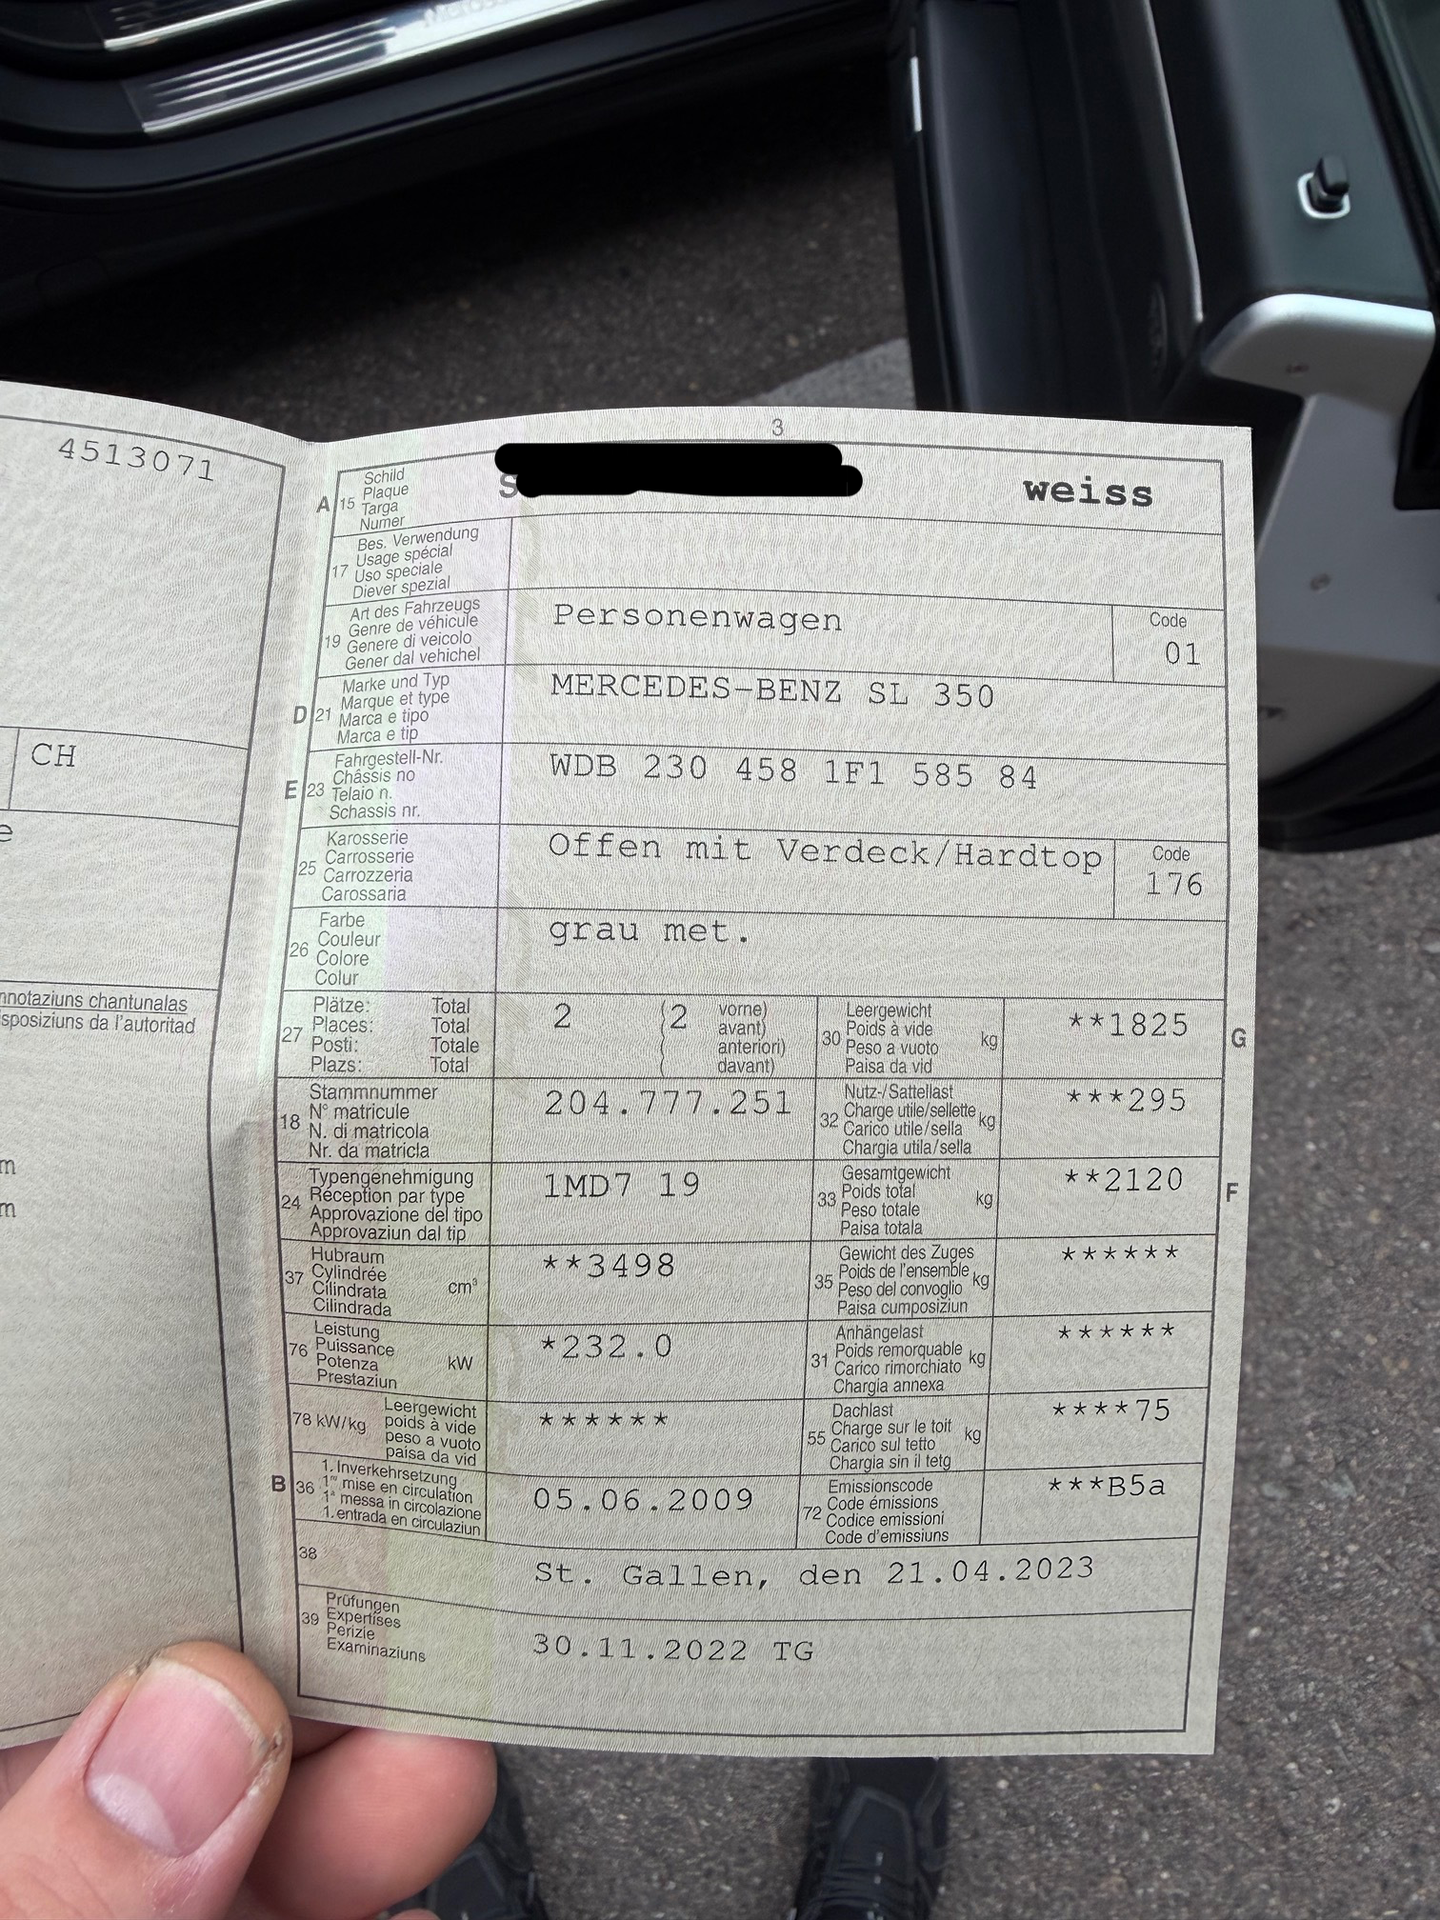 4513071
CH
e
nnotaziuns chantunalas
sposiziuns da l'autoritad
m
m
3
A 15 Schild
Plaque
Targa
Numer
S
weiss
17 Bes. Verwendung
Usage spécial
Uso speciale
Diever spezial
19 Art des Fahrzeugs
Genre de véhicule
Genere di veicolo
Gener dal vehichel
Personenwagen
Code
01
D 21 Marke und Typ
Marque et type
Marca e tipo
Marca e tip
MERCEDES-BENZ SL 350
E 23 Fahrgestell-Nr.
Châssis no
Telaio n.
Schassis nr.
WDB 230 458 1F1 585 84
25 Karosserie
Carrosserie
Carrozzeria
Carossaria
Offen mit Verdeck/Hardtop
Code
176
26 Farbe
Couleur
Colore
Colur
grau met.
27 Plätze: Total
Places: Total
Posti: Totale
Plazs: Total
2 (2 vorne)
avant)
anteriori)
davant)
30 Leergewicht
Poids à vide
Peso a vuoto
Paisa da vid
kg
**1825
G
18 Stammnummer
N° matricule
N. di matricola
Nr. da matricla
204.777.251
32 Nutz-/Sattellast
Charge utile/sellette
Carico utile/sella
Chargia utila/sella
kg
***295
24 Typengenehmigung
Réception par type
Approvazione del tipo
Approvaziun dal tip
1MD7 19
33 Gesamtgewicht
Poids total
Peso totale
Paisa totala
kg
**2120
F
37 Hubraum
Cylindrée
Cilindrata
Cilindrada
cm³
**3498
35 Gewicht des Zuges
Poids de l'ensemble
Peso del convoglio
Paisa cumposiziun
kg
******
76 Leistung
Puissance
Potenza
Prestaziun
kW
*232.0
31 Anhängelast
Poids remorquable
Carico rimorchiato
Chargia annexa
kg
******
78 kW/kg
Leergewicht
poids à vide
peso a vuoto
paisa da vid
******
55 Dachlast
Charge sur le toit
Carico sul tetto
Chargia sin il tetg
kg
****75
B 36 1. Inverkehrsetzung
1re mise en circulation
1a messa in circolazione
1. entrada en circulaziun
05.06.2009
72 Emissionscode
Code émissions
Codice emissioni
Code d'emissiuns
***B5a
38
St. Gallen, den 21.04.2023
39 Prüfungen
Expertises
Perizie
Examinaziuns
30.11.2022 TG